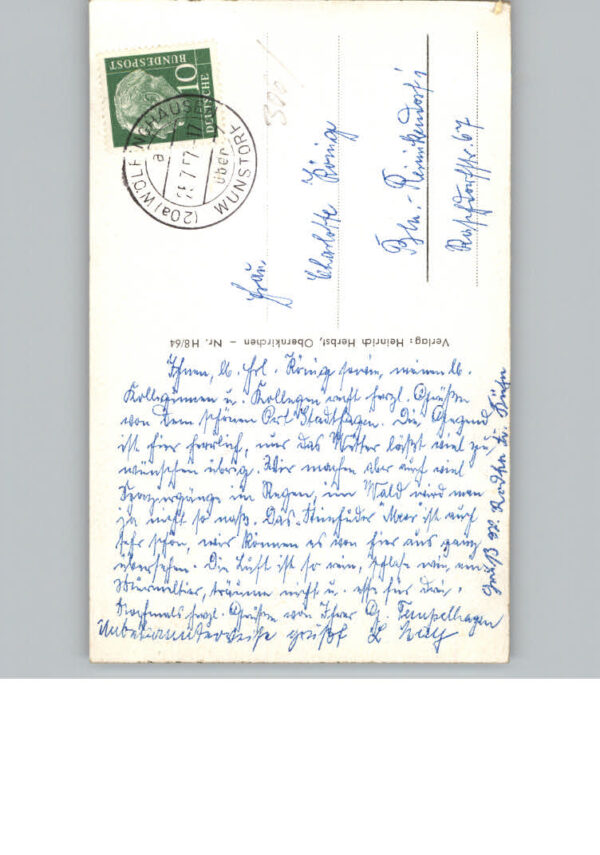 DEUTSCHE
BUNDESPOST
10
(20a) WOLFENHAUSEN
über
WUNSTORF
Frau
Charlotte König
Bln.-Reinickendorf 1
Raschdorffstr. 67
Verlag: Heinrich Herbst, Obernkirchen – Nr. H8/64
Ihnen, lb. Frl. König sowie meinen lb.
Kolleginnen u. Kollegen recht herzl. Grüße
von dem schönen Ort Stadthagen. Die Gegend
ist hier herrlich, nur das Wetter läßt viel zu
wünschen übrig. Wir machen aber auch viel
Spaziergänge im Regen, im Wald wird man
ja nicht so naß. Das "Steinhuder Meer" ist auch
sehr schön, wir können es von hier aus ganz
übersehen. Die Luft ist so rein, schlafe wie ein
Murmeltier, träume nicht u. esse für drei.
Nochmals herzl. Grüße von Ihrer Tempelhagen
Unbekannterweise grüßt
Gruß